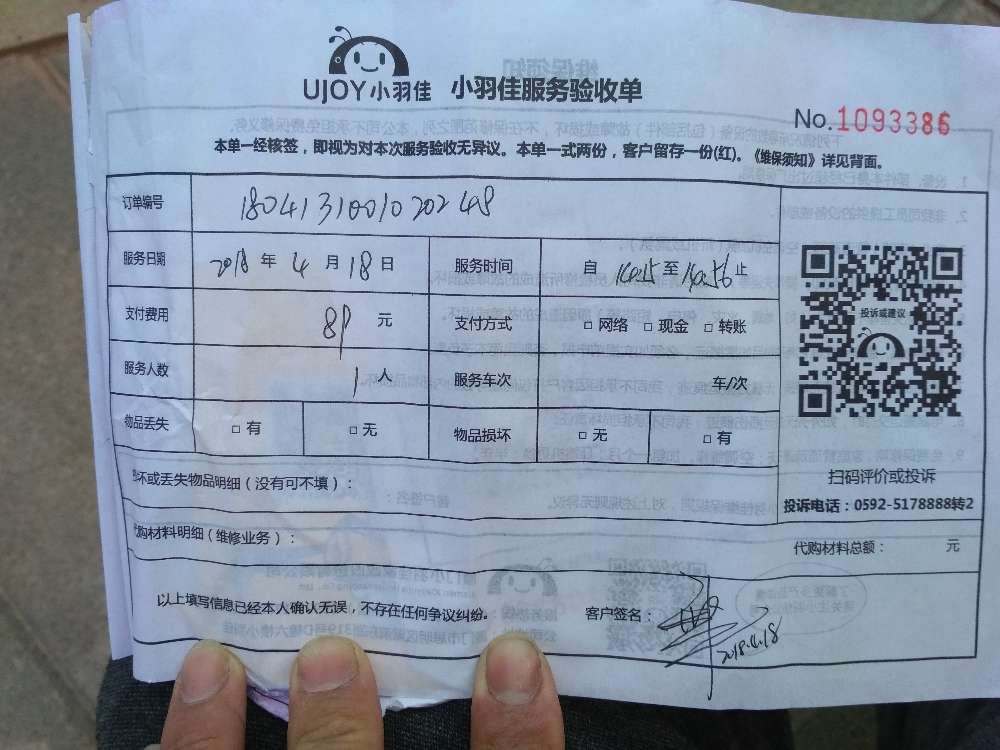 UJOY小羽佳 小羽佳服务验收单
No. 1093386
本单一经核签，即视为对本次服务验收无异议。本单一式两份，客户留存一份(红)。《维保须知》详见背面。
订单编号 1804131001020248
服务日期 2018 年 4 月 18 日 服务时间 自 14:15 至 14:56 止
支付费用 元 支付方式 □ 网络 □ 现金 □ 转账
服务人数 1 人 服务车次 车/次
物品丢失 □ 有 □ 无 物品损坏 □ 无 □ 有
投诉或建议
扫码评价或投诉
投诉电话：0592-5178888转2
坏或丢失物品明细（没有可不填）：
购材料明细（维修业务）： 代购材料总额： 元
以上填写信息已经本人确认无误，不存在任何争议纠纷。 客户签名：
2018.4.18